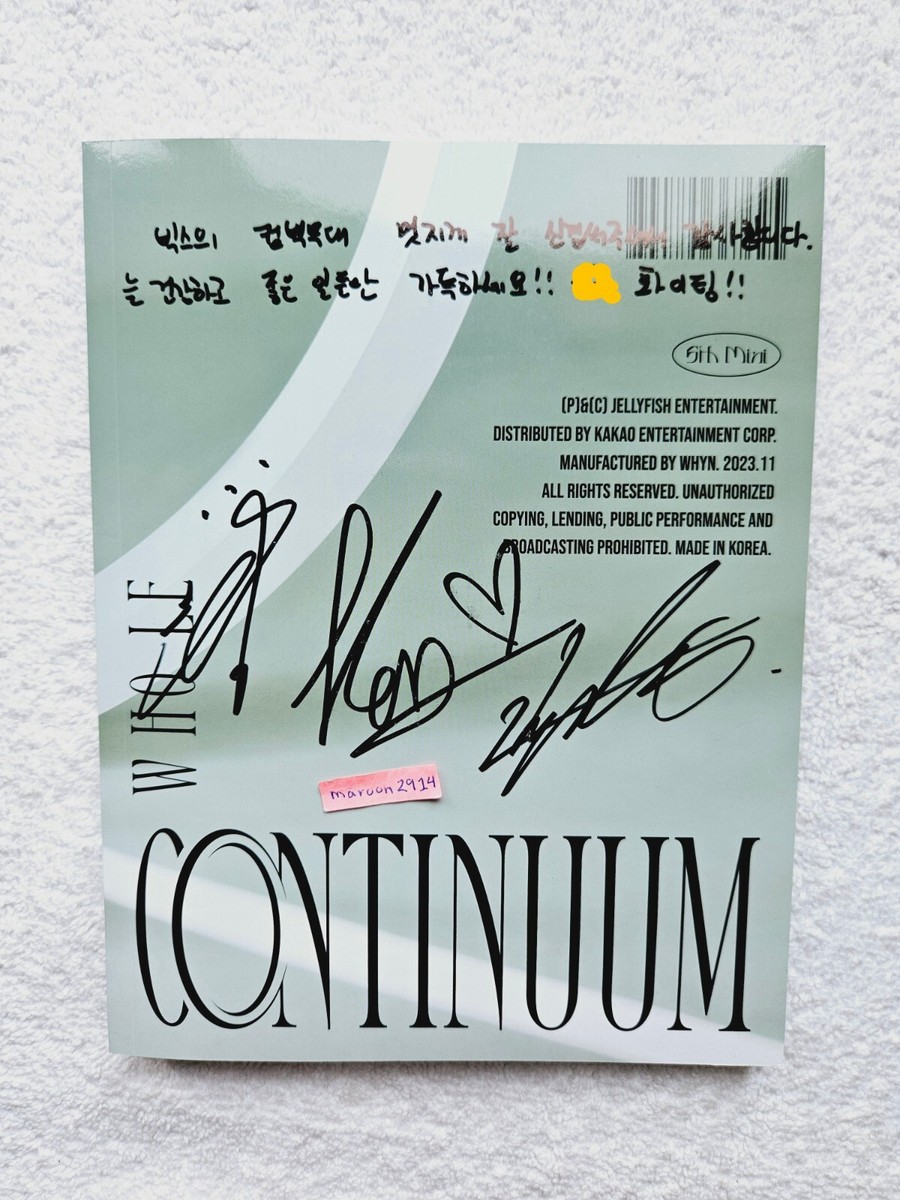 빅스의 컴백무대 멋지게 잘 신경써주셔서 감사합니다.
늘 건강하고 좋은 일들만 가득하세요!! 화이팅!!
5th Mini
(P)&(C) JELLYFISH ENTERTAINMENT.
DISTRIBUTED BY KAKAO ENTERTAINMENT CORP.
MANUFACTURED BY WHYN. 2023.11
ALL RIGHTS RESERVED. UNAUTHORIZED
COPYING, LENDING, PUBLIC PERFORMANCE AND
BROADCASTING PROHIBITED. MADE IN KOREA.
WHOLE
Ken
maroon2914
CONTINUUM